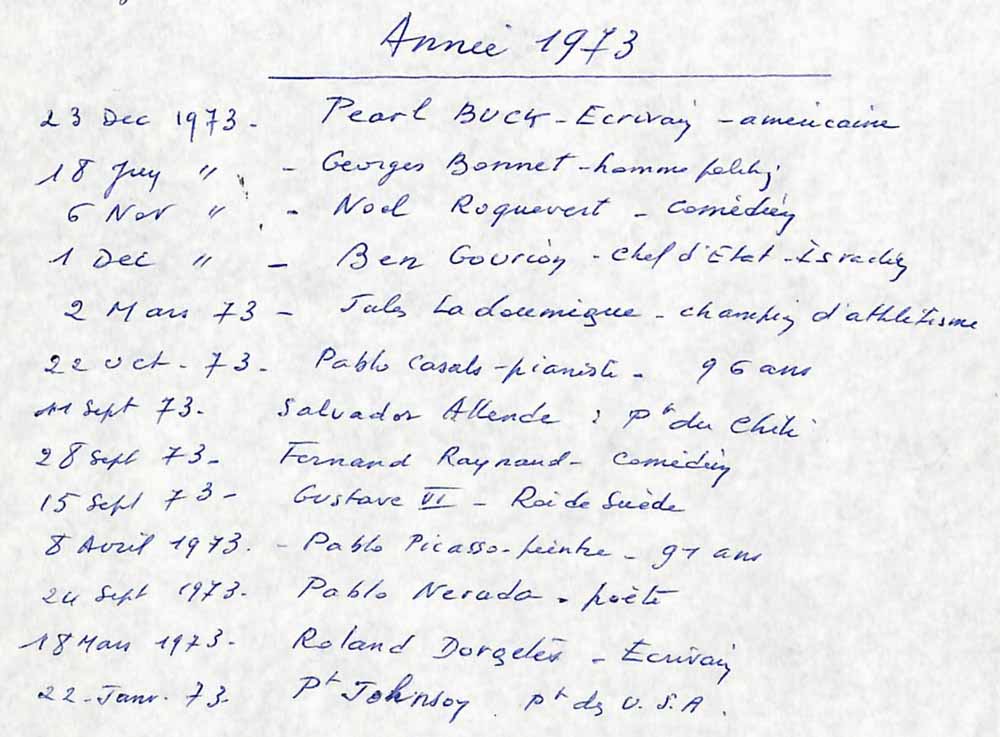 Année 1973
23 Dec 1973 - Pearl BUCK - Ecrivain - américaine
18 Juin " - Georges Bonnet - homme politiq
6 Nov " - Noël Roquevert - Comédien
1 Dec " - Ben Gourion - Chef d'Etat - Israélien
2 Mars 73 - Jules Ladoumègue - champion d'athlétisme
22 Oct - 73 - Pablo Casals - pianiste - 96 ans
11 Sept 73 - Salvador Allende : Pt du Chili
28 Sept 73 - Fernand Raynaud - Comédien
15 Sept 73 - Gustave VI - Roi de Suède
8 Avril 1973. - Pablo Picasso - peintre - 91 ans
24 Sept 1973 - Pablo Neruda - poète
18 Mars 1973 - Roland Dorgelès - Ecrivain
22 - Janv. 73. Pt Johnson Pt des U.S.A.